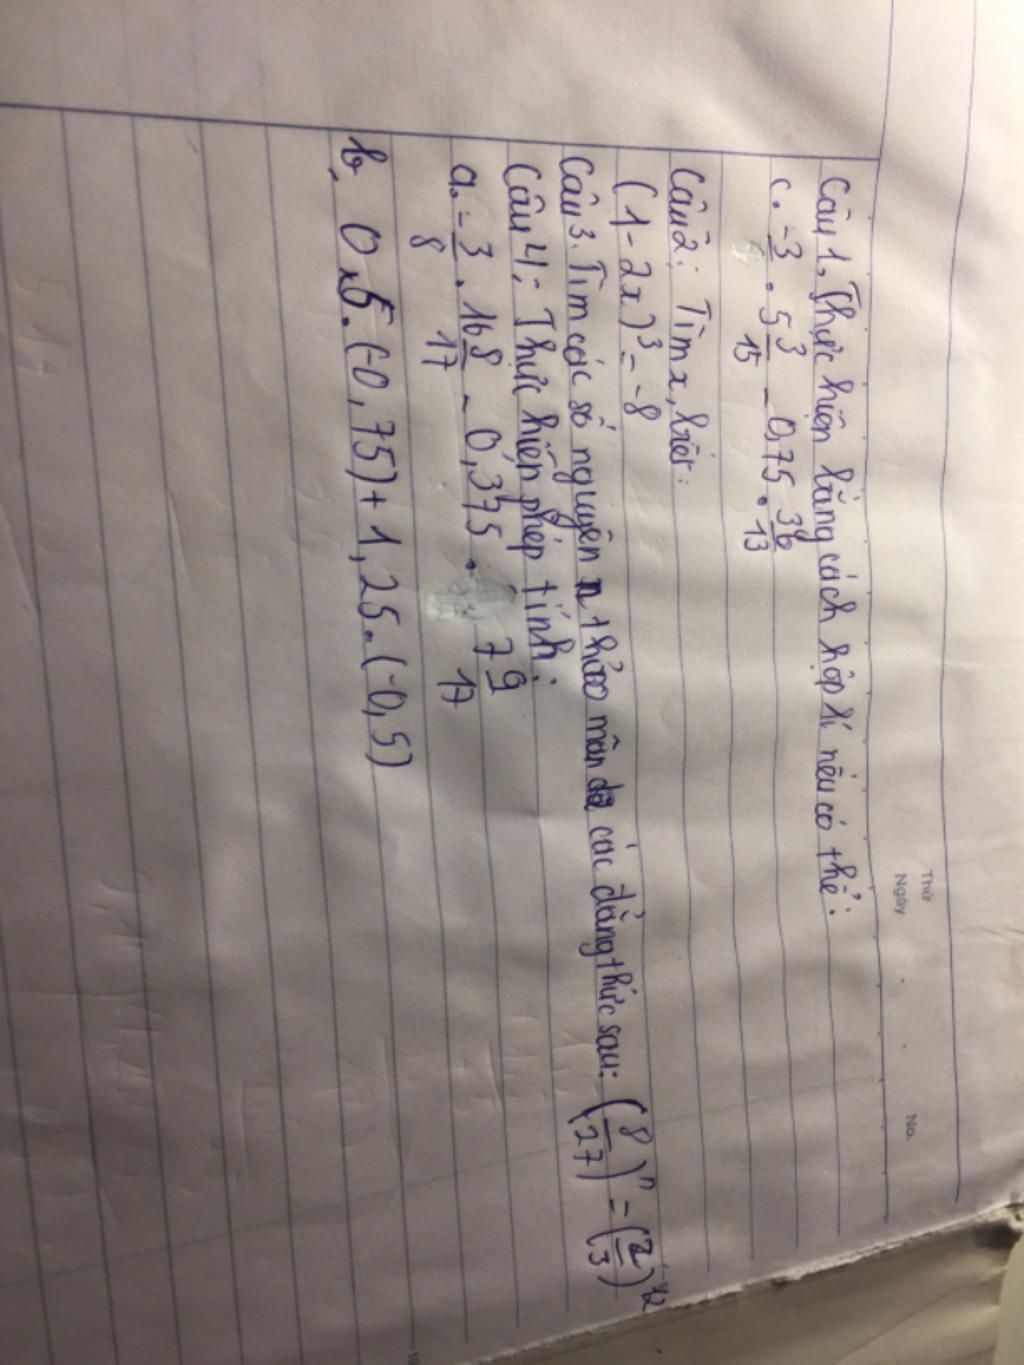 Thứ
Ngày . . No.
Câu 1. Thực hiện bằng cách hợp lí nếu có thể:
c. -3/ . 5 3/15 - 0,75 . 36/13
Câu 2: Tìm x, biết:
(1-2x)³ = -8
Câu 3. Tìm các số nguyên n thỏa mãn các đẳng thức sau: (8/27)ⁿ = (2/3)¹²
Câu 4: Thực hiện phép tính:
a. -3/8 . 16 8/17 - 0,375 . 7 9/17
b, 0,5.(-0,75) + 1,25.(-0,5)